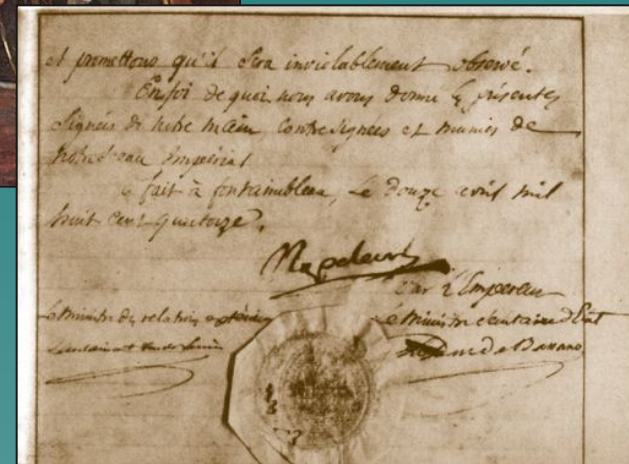 et promettons qu'il sera inviolablement observé.
En foi de quoi nous avons donné les présentes
Signées de notre main contresignées et munies de
notre sceau Impérial
fait à fontainebleau, Le Douze avril mil
huit cent quatorze.
Napoleon
Par l'Empereur
Le Ministre des relations extérieures
Le Ministre Secrétaire d'Etat
Le Duc de Bassano